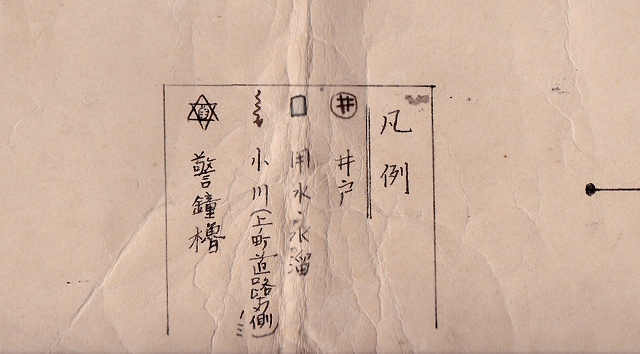 凡例
井戸
用水・水溜
小川(上町道路
警鐘櫓